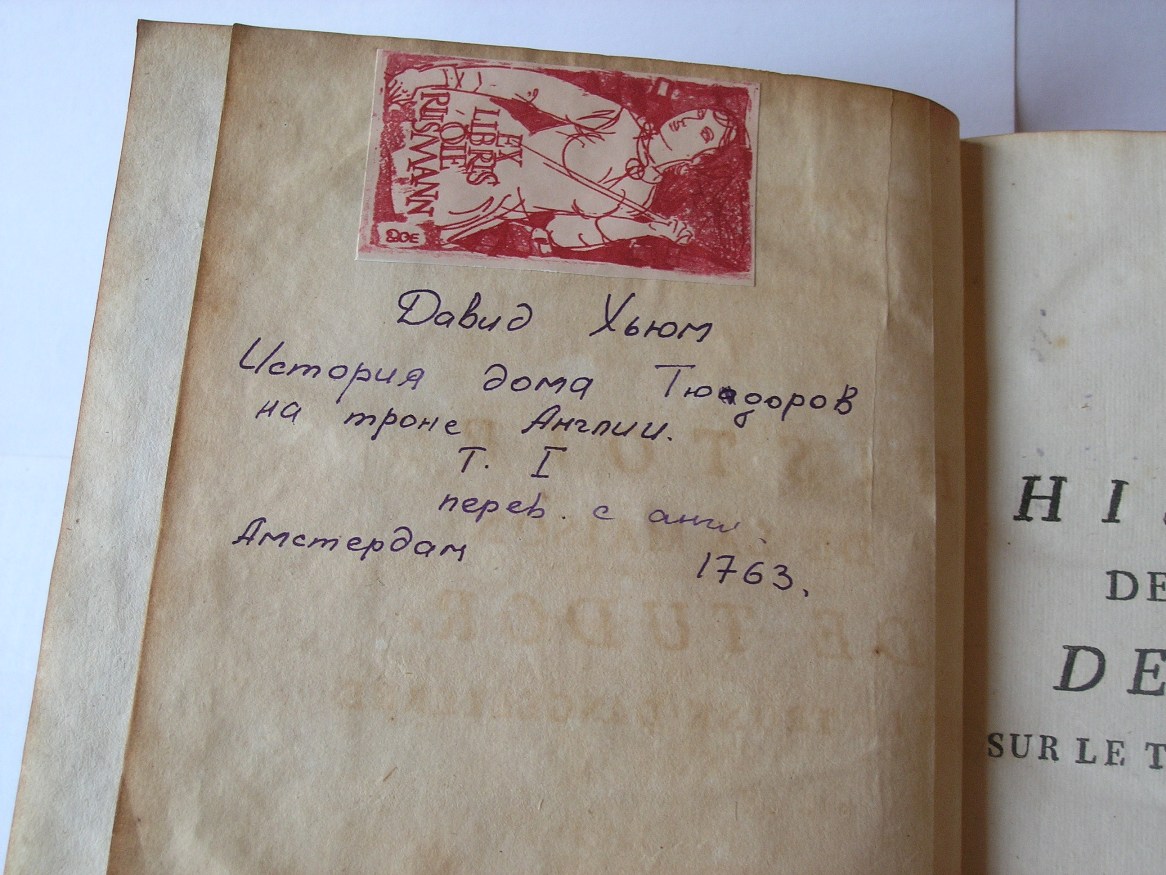 EX
LIBRIS
OLE
RUSMANN
Давид Хьюм
История дома Тюдоров
на троне Англии.
Т. I
перев. с англ.
Амстердам 1763.
HIS
DE
DE
SUR LE T